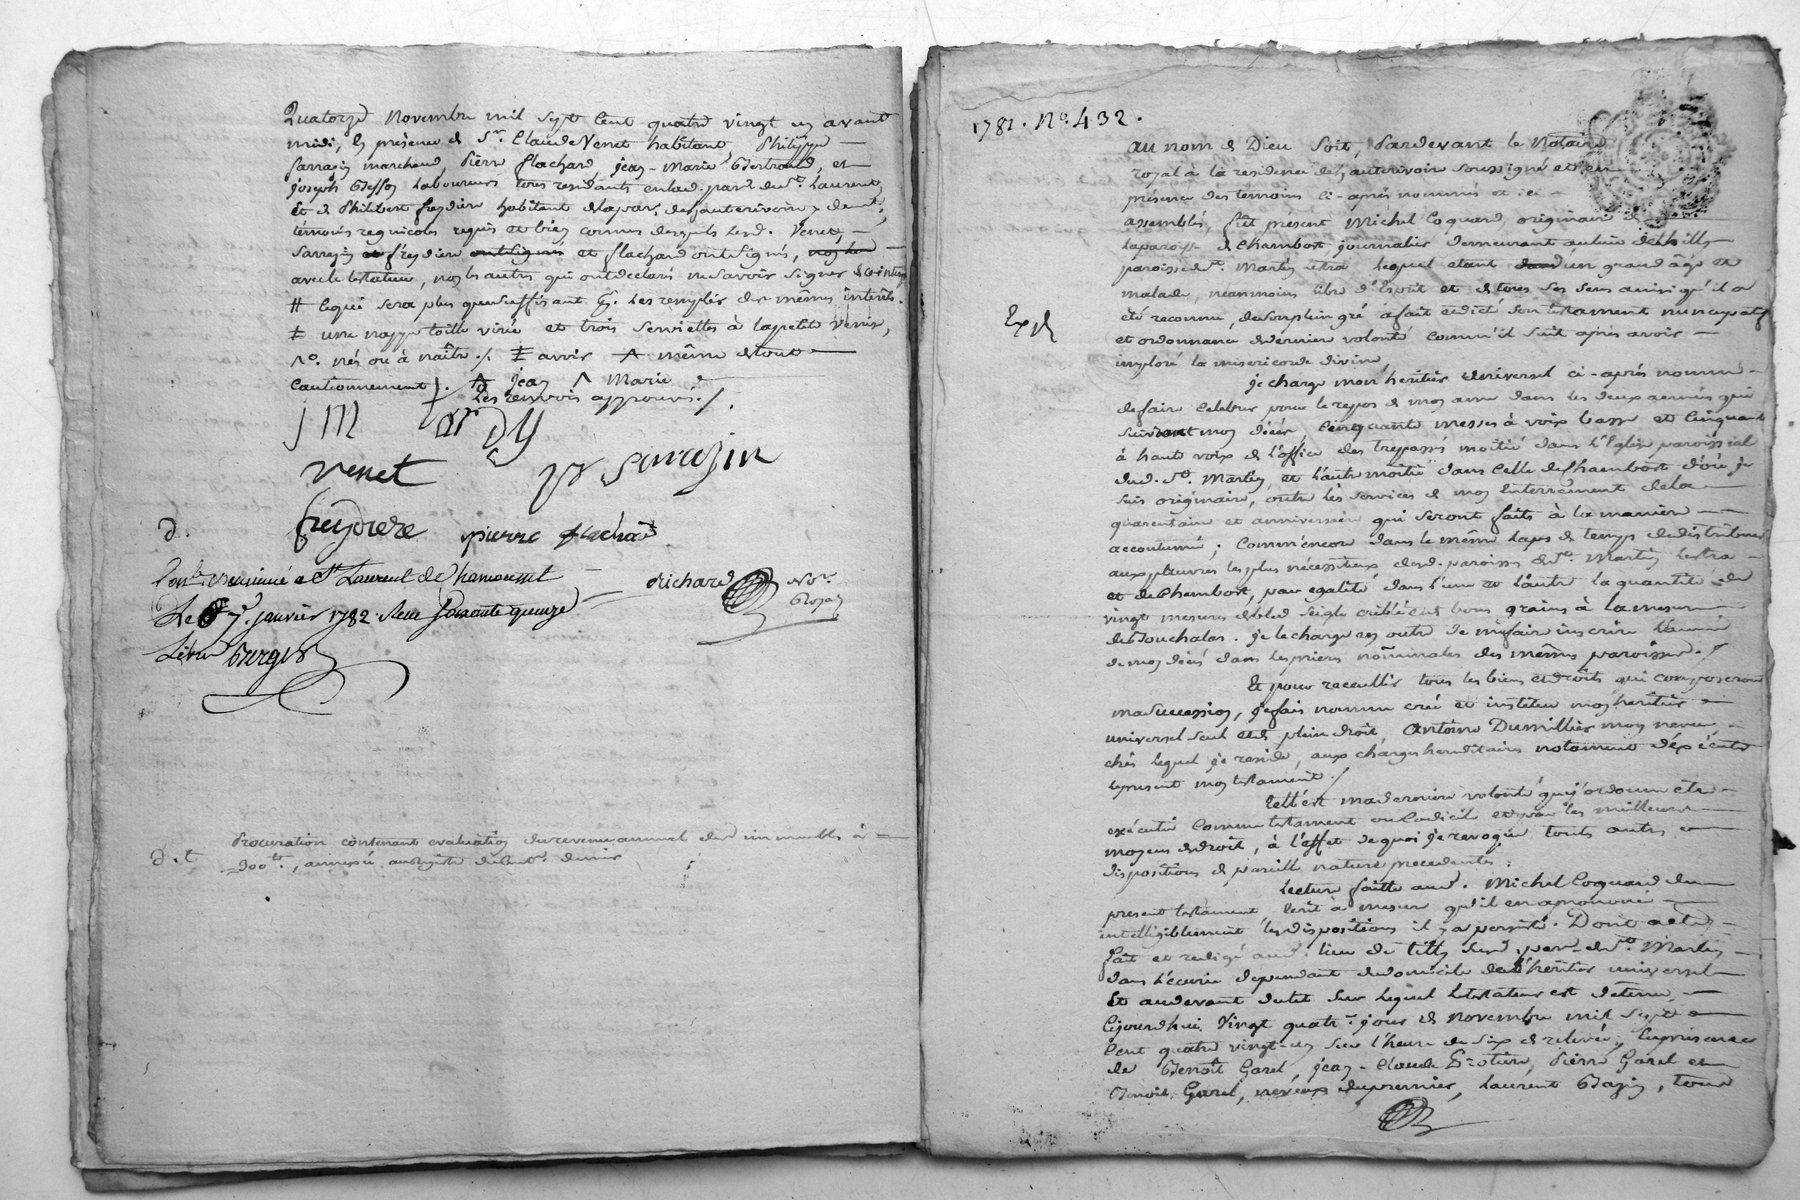 Quatorze Novembre mil sept Cent quatre vingt un avant
midi, En présence de Sr. Claude Venet habitant, Philippe
Sarrazin marchand, Pierre flachard, jean-Marie Bertrand, et
joseph Besson Laboureurs tous residants en lad. parr. de St. Laurent,
Et de Philibert freydiere habitant de la par. de hauterivoire
témoins regnicoles requis et bien connus desquels lesd. Venet,
Sarrazin et freydiere ont signés et flachard ont signés,
avec le testateur, non les autres qui ont declaré ne savoir signer de ce interp.
# lequel sera plus que suffisant pr. les remplir des mêmes intérêts.
ǂ une nappe toille virée et trois serviettes à la petite Venise,
No. nés ou à naître ./. ǂ avoir ʌ même de tout
Cautionnement ). ʌ jean ʌ Marie
Les renvois approuvés ./.
JM Mardy
venet Sarrazin
freydiere pierre flachard
d.
Conlé. et insinué a St. Laurent de Chamousset
Le 7e. janvier 1782. Reçu soixante quinze
Livres Berger
Richard Nore.
Royal
d. t. Procuration contenant evaluation du revenu annuel des immeubles à
300tt., annexée au registre
1781. No. 432.
Exp d
Au nom de Dieu soit, Pardevant le Notaire
royal à la residence de hauterivoire soussigné et en
présence des temoins ci-après nommés et ici
assemblés, fût présent Michel Coquard originaire de
la paroisse de Chambost journalier demeurant au lieu de thilly
paroisse de St. Martin lestra lequel etant d'un grand âge et
malade, neanmoins libre d'Esprit et de tous ses sens ainsi qu'il a
été reconnu, de son plein gré a fait et dicté son testament nuncupatif
et ordonnance de derniere volonté comm'il suit après avoir
imploré la misericorde divine,
je charge mon héritier universel ci-après nommé
de faire celebrer pour le repos de mon ame dans les deux années qui
suivront mon décès, Cinquante messes à voix basse et Cinquante
à haute voix de l'office des trepassés moitié dans l'Eglise paroissial
dud. St. Martin, et l'autre moitié dans Celle de Chambost d'où je
suis originaire, outre les services de mon Enterrement de la
quarantaine et anniversaire qui seront faits à la maniere
accoutumée; Comm'encore dans le même laps de temps de distribuer
aux pauvres les plus necessiteux desd. paroisses de St. Martin lestra
et de Chambost, par egalité dans l'une et l'autre la quantité de
vingt mesures de bled seigle criblé et bons grains à la mesure
de Bouchalas. je le charge en outre de me faire inscrire l'année
de mon décès dans les prieres nominales des mêmes paroisses ./
Et pour recueillir tous les biens et droits qui composeront
ma Succession, je fais nomme créé et institue mon héritier
universel seul et de plein droit, Antoine Dumillier mon neveu
chés lequel je reside, aux charges hereditaires notament d'éxécuter
le present mon testament ./
Tell'est ma derniere volonté que j'ordonne être
exécutée Comme testament ou Codicile et par les meilleurs
moyens de droit, à l'effet de quoi je revoque touts autres
dispositions de pareille nature precedentes.
Lecture faitte aud. Michel Coquard du
present testament, Ecrit à mesure qu'il en a prononcé
intelligiblement les dispositions il y a persisté. Dont acte,
fait et redigé aud. lieu de tilly susd. parr. de St. Martin
dans l'écurie dependant du domicile de l'héritier universel
Et au devant du lit sur lequel le testateur est detenu,
Cejourdhui Vingt quatre. jour de Novembre mil Sept
Cent quatre vingt-un sur l'heure de six de relevée, En présence
de Benoît Garel, jean-Claude Brotier, Pierre Garel et
Benoît Garel, neveux du premier, Laurent Bazin, tous